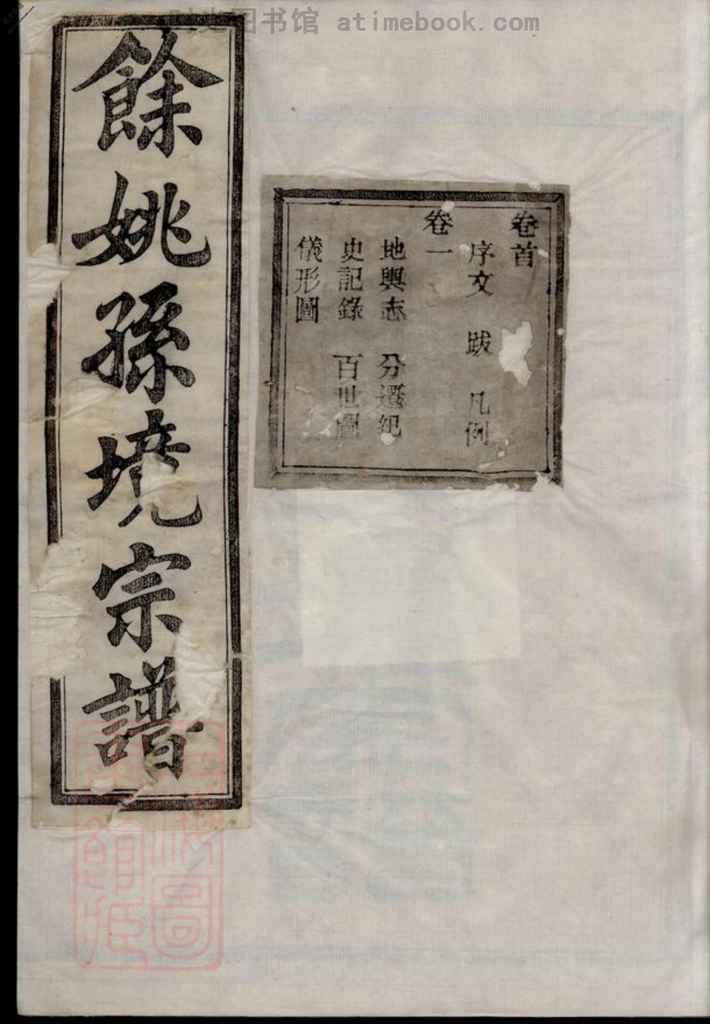 图书馆 atimebook.com
餘姚孫境宗譜
卷首
序文 跋 凡例
卷一
地輿志 分遷紀
史記錄 百世圖
儀形圖